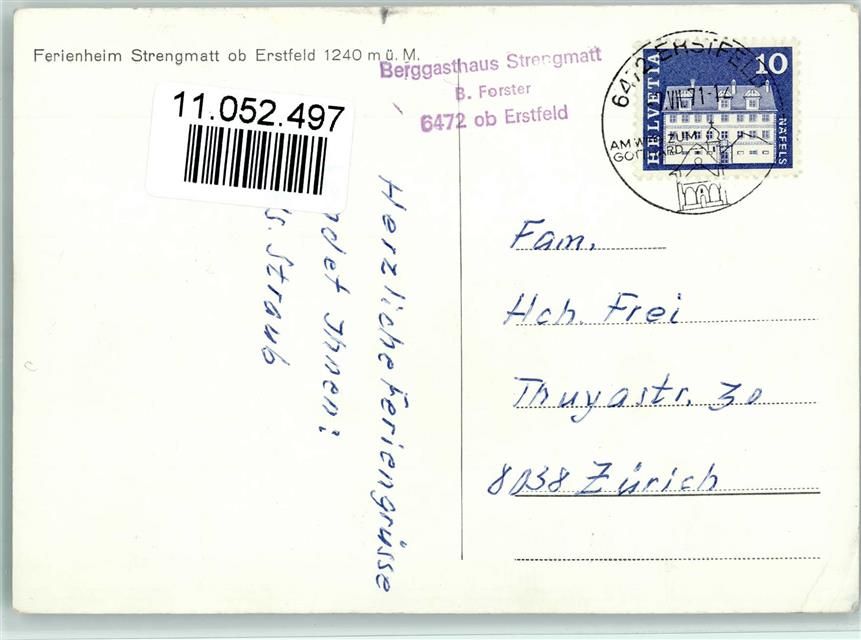 Ferienheim Strengmatt ob Erstfeld 1240 m ü. M.
Berggasthaus Strengmatt
B. Forster
6472 ob Erstfeld
6472 ERSTFELD
VII.71-12
AM WEG ZUM
GOTTHARD
HELVETIA
10
NÄFELS
11.052.497
Herzliche Feriengrüsse
Ihnen:
Straub
Fam.
Hch. Frei
Thuyastr. 30
8038 Zürich